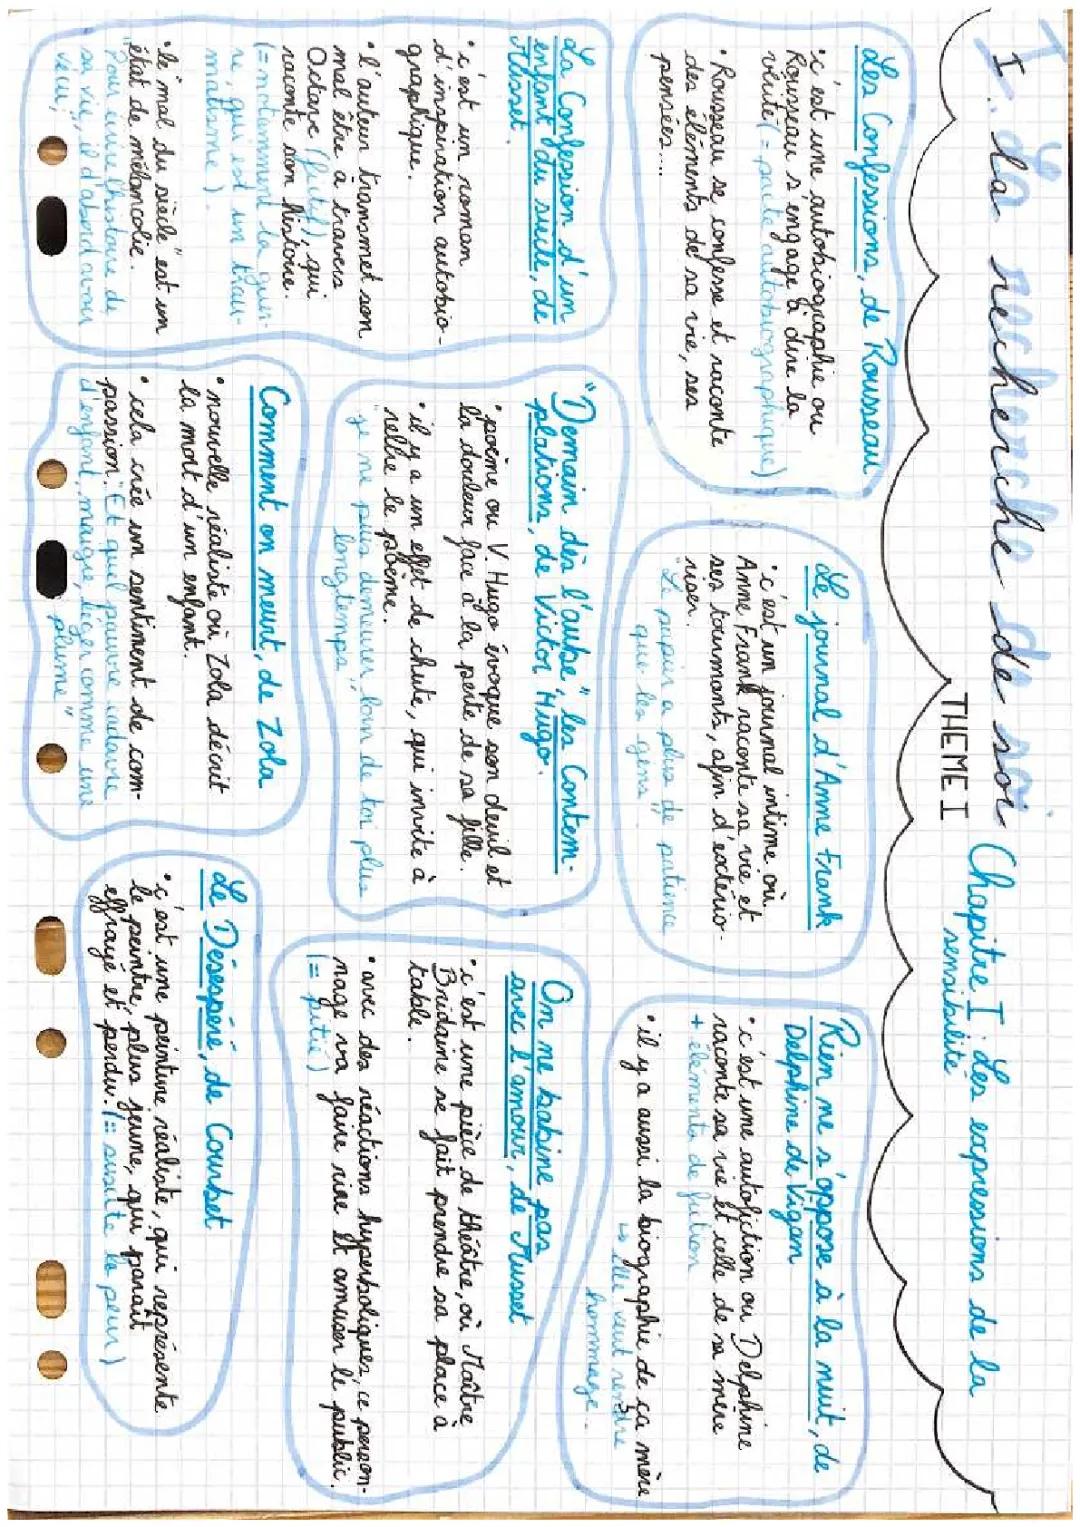 I. La recherche de soi
THEME I
Chapitre I : Les expressions de la
sensibilité
Les Confessions, de Rousseau
• c'est une autobiographie ou
Rousseau s'engage à dire la
vérité (= pacte autobiographique)
• Rousseau se confesse et raconte
des éléments de sa vie, ses
pensées...
Le journal d'Anne Frank
• c'est un journal intime où
Anne Frank raconte sa vie et
ses tourments, afin d'extério-
riser.
"Le papier a plus de patience
que les gens"
Rien ne s'oppose à la nuit, de
Delphine de Vigan
• c'est une autofiction ou Delphine
raconte sa vie et celle de sa mère
+ éléments de fiction
• il y a aussi la biographie de ça mère
↳ Elle veut rendre
hommage.
La Confession d'un
enfant du siècle, de
Musset.
• c'est un roman
d'inspiration autobio-
graphique.
• l'auteur transmet son
mal être à travers
Octave (fictif), qui
raconte son histoire.
(= notamment la guer-
re, qui est un trau-
matisme).
• le "mal du siècle" est un
état de mélancolie.
"Pour écrire l'histoire de
sa vie, il faut d'abord avoir
vécu",
"Demain dès l'aube", les Contem-
plations, de Victor Hugo.
• poème ou V. Hugo évoque son deuil et
la douleur face à la perte de sa fille.
• il y a un effet de chute, qui invite à
relire le poème.
"je ne puis demeurer loin de toi plus
longtemps",
On ne badine pas
avec l'amour, de Musset
• c'est une pièce de théâtre, où Maître
Bridaine se fait prendre sa place à
table.
• avec des réactions hyperboliques, ce person-
nage va faire rire et amuser le public.
(= pitié)
Comment on meurt, de Zola
• nouvelle réaliste où Zola décrit
la mort d'un enfant.
• cela crée un sentiment de com-
passion. "Et quel pauvre cadavre
d'enfant, maigre, léger comme une
plume"
Le Désespéré, de Courbet
• c'est une peinture réaliste, qui représente
le peintre, plus jeune, qui parait
effrayé et perdu. (= suscite la peur)